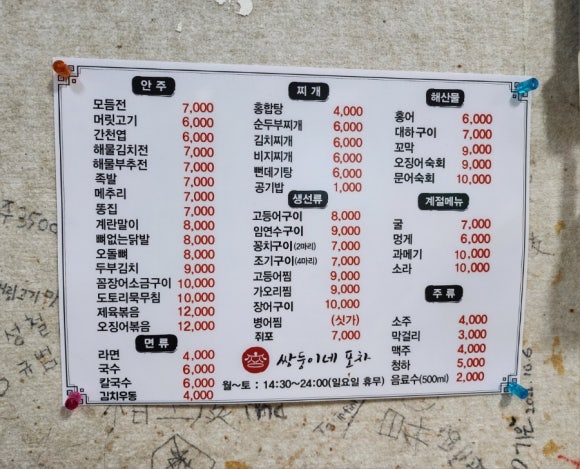 안 주
모듬전 7,000
머릿고기 6,000
간천엽 6,000
해물김치전 7,000
해물부추전 7,000
족발 7,000
메추리 7,000
똥집 7,000
계란말이 8,000
뼈없는닭발 8,000
오돌뼈 8,000
두부김치 9,000
꼼장어소금구이 10,000
도토리묵무침 10,000
제육볶음 12,000
오징어볶음 12,000
면 류
라면 4,000
국수 6,000
칼국수 6,000
김치우동 4,000
찌 개
홍합탕 4,000
순두부찌개 6,000
김치찌개 6,000
비지찌개 6,000
뻔데기탕 6,000
공기밥 1,000
생선류
고등어구이 8,000
임연수구이 9,000
꽁치구이(2마리) 7,000
조기구이(4마리) 7,000
고등어찜 9,000
가오리찜 9,000
장어구이 10,000
병어찜 (싯가)
쥐포 7,000
해산물
홍어 6,000
대하구이 7,000
꼬막 9,000
오징어숙회 9,000
문어숙회 10,000
계절메뉴
굴 7,000
멍게 6,000
과메기 10,000
소라 10,000
주 류
소주 4,000
막걸리 3,000
맥주 4,000
청하 5,000
음료수(500ml) 2,000
쌍둥이네 포차
월~토 : 14:30~24:00(일요일 휴무)